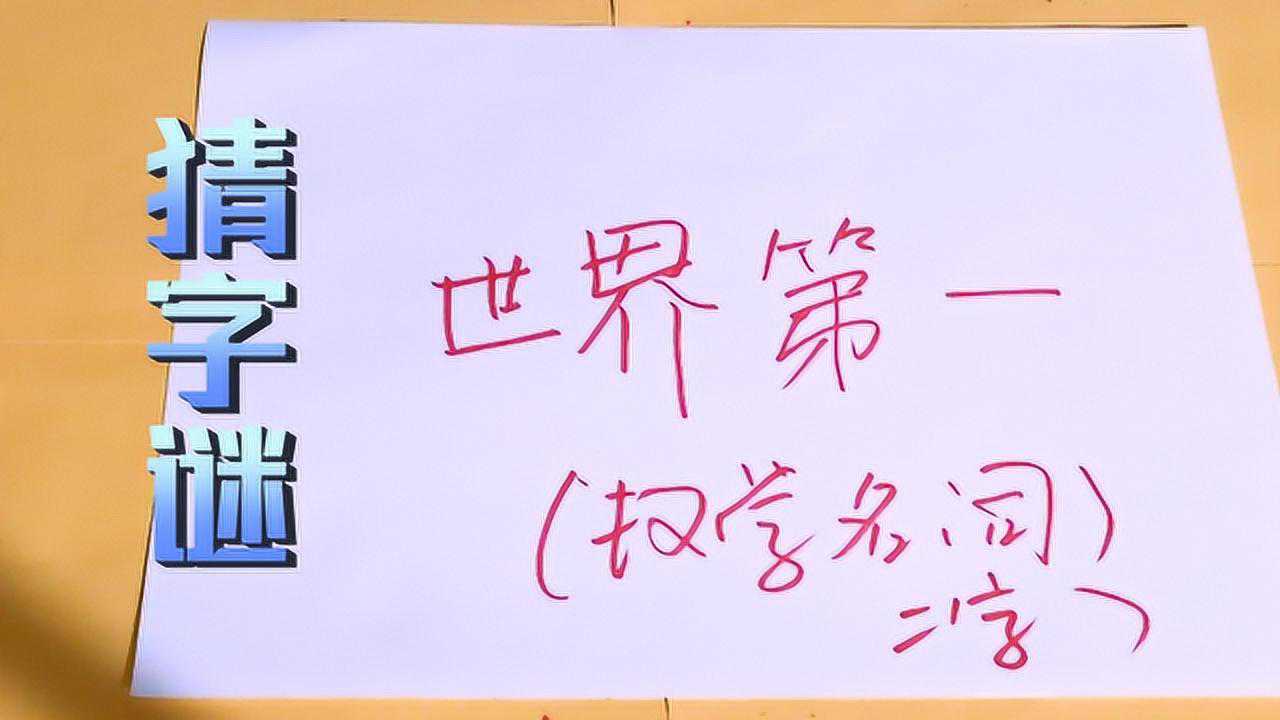 猜字谜
世界第一
(教学名词)
二字)